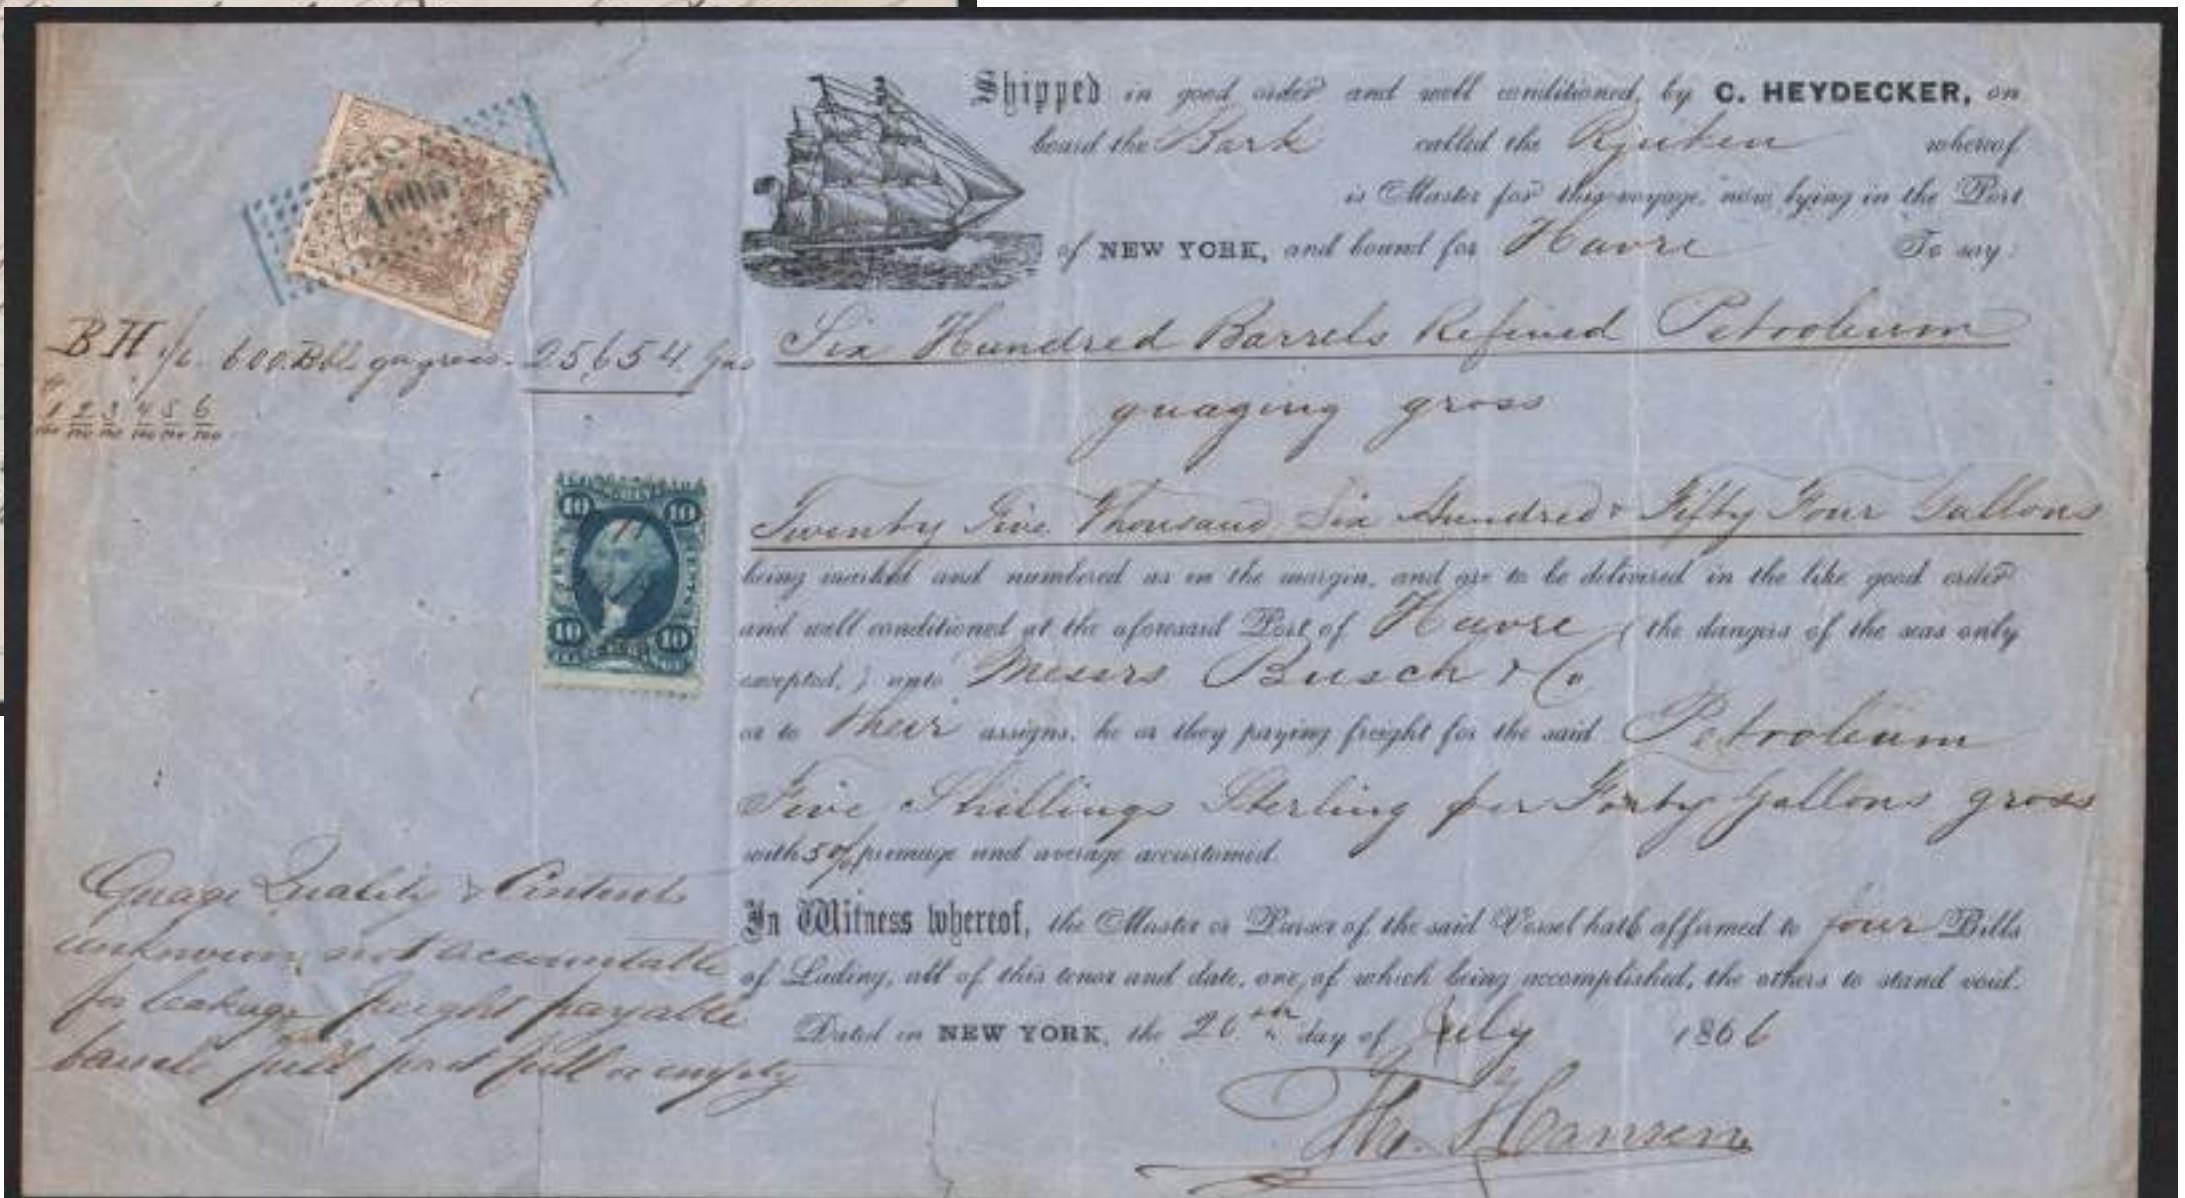 Shipped in good order and well conditioned, by C. HEYDECKER, on
board the Bark called the Rjuken whereof
is Master for this voyage, now lying in the Port
of NEW YORK, and bound for Havre To say:
BH 600 Bbl 25,654
1 2 3 4 5 6
100 100 100 100 100 100
Six Hundred Barrels Refined Petroleum
guaging gross
10 10
10 10
Twenty Five Thousand Six Hundred & Fifty Four Gallons
being marked and numbered as in the margin, and are to be delivered in the like good order
and well conditioned at the aforesaid Port of Havre (the dangers of the seas only
excepted,) unto Messrs Busch & Co
or to their assigns, he or they paying freight for the said Petroleum
Five Shillings Sterling per Forty Gallons gross
with 5 % primage and average accustomed.
In Witness whereof, the Master or Purser of the said Vessel hath affirmed to four Bills
of Lading, all of this tenor and date, one of which being accomplished, the others to stand void.
Dated in NEW YORK, the 20th day of July 1866
Guage Quality & Contents
unknown, not accountable
for leakage freight payable
barrels full part full or empty
Th. Hansen